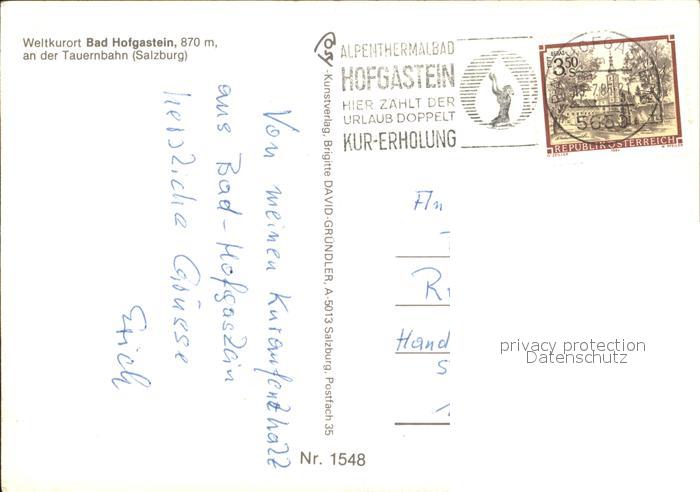 Weltkurort Bad Hofgastein, 870 m,
an der Tauernbahn (Salzburg)
Von meinen Kuraufenthalt
aus Bad-Hofgastein
herzliche Grüsse
Erich
-Kunstverlag, Brigitte DAVID-GRÜNDLER, A-5013 Salzburg, Postfach 35
Nr. 1548
ALPENTHERMALBAD
HOFGASTEIN
HIER ZÄHLT DER
URLAUB DOPPELT
KUR-ERHOLUNG
3.50
5630
REPUBLIK ÖSTERREICH
An
Hand
privacy protection
Datenschutz